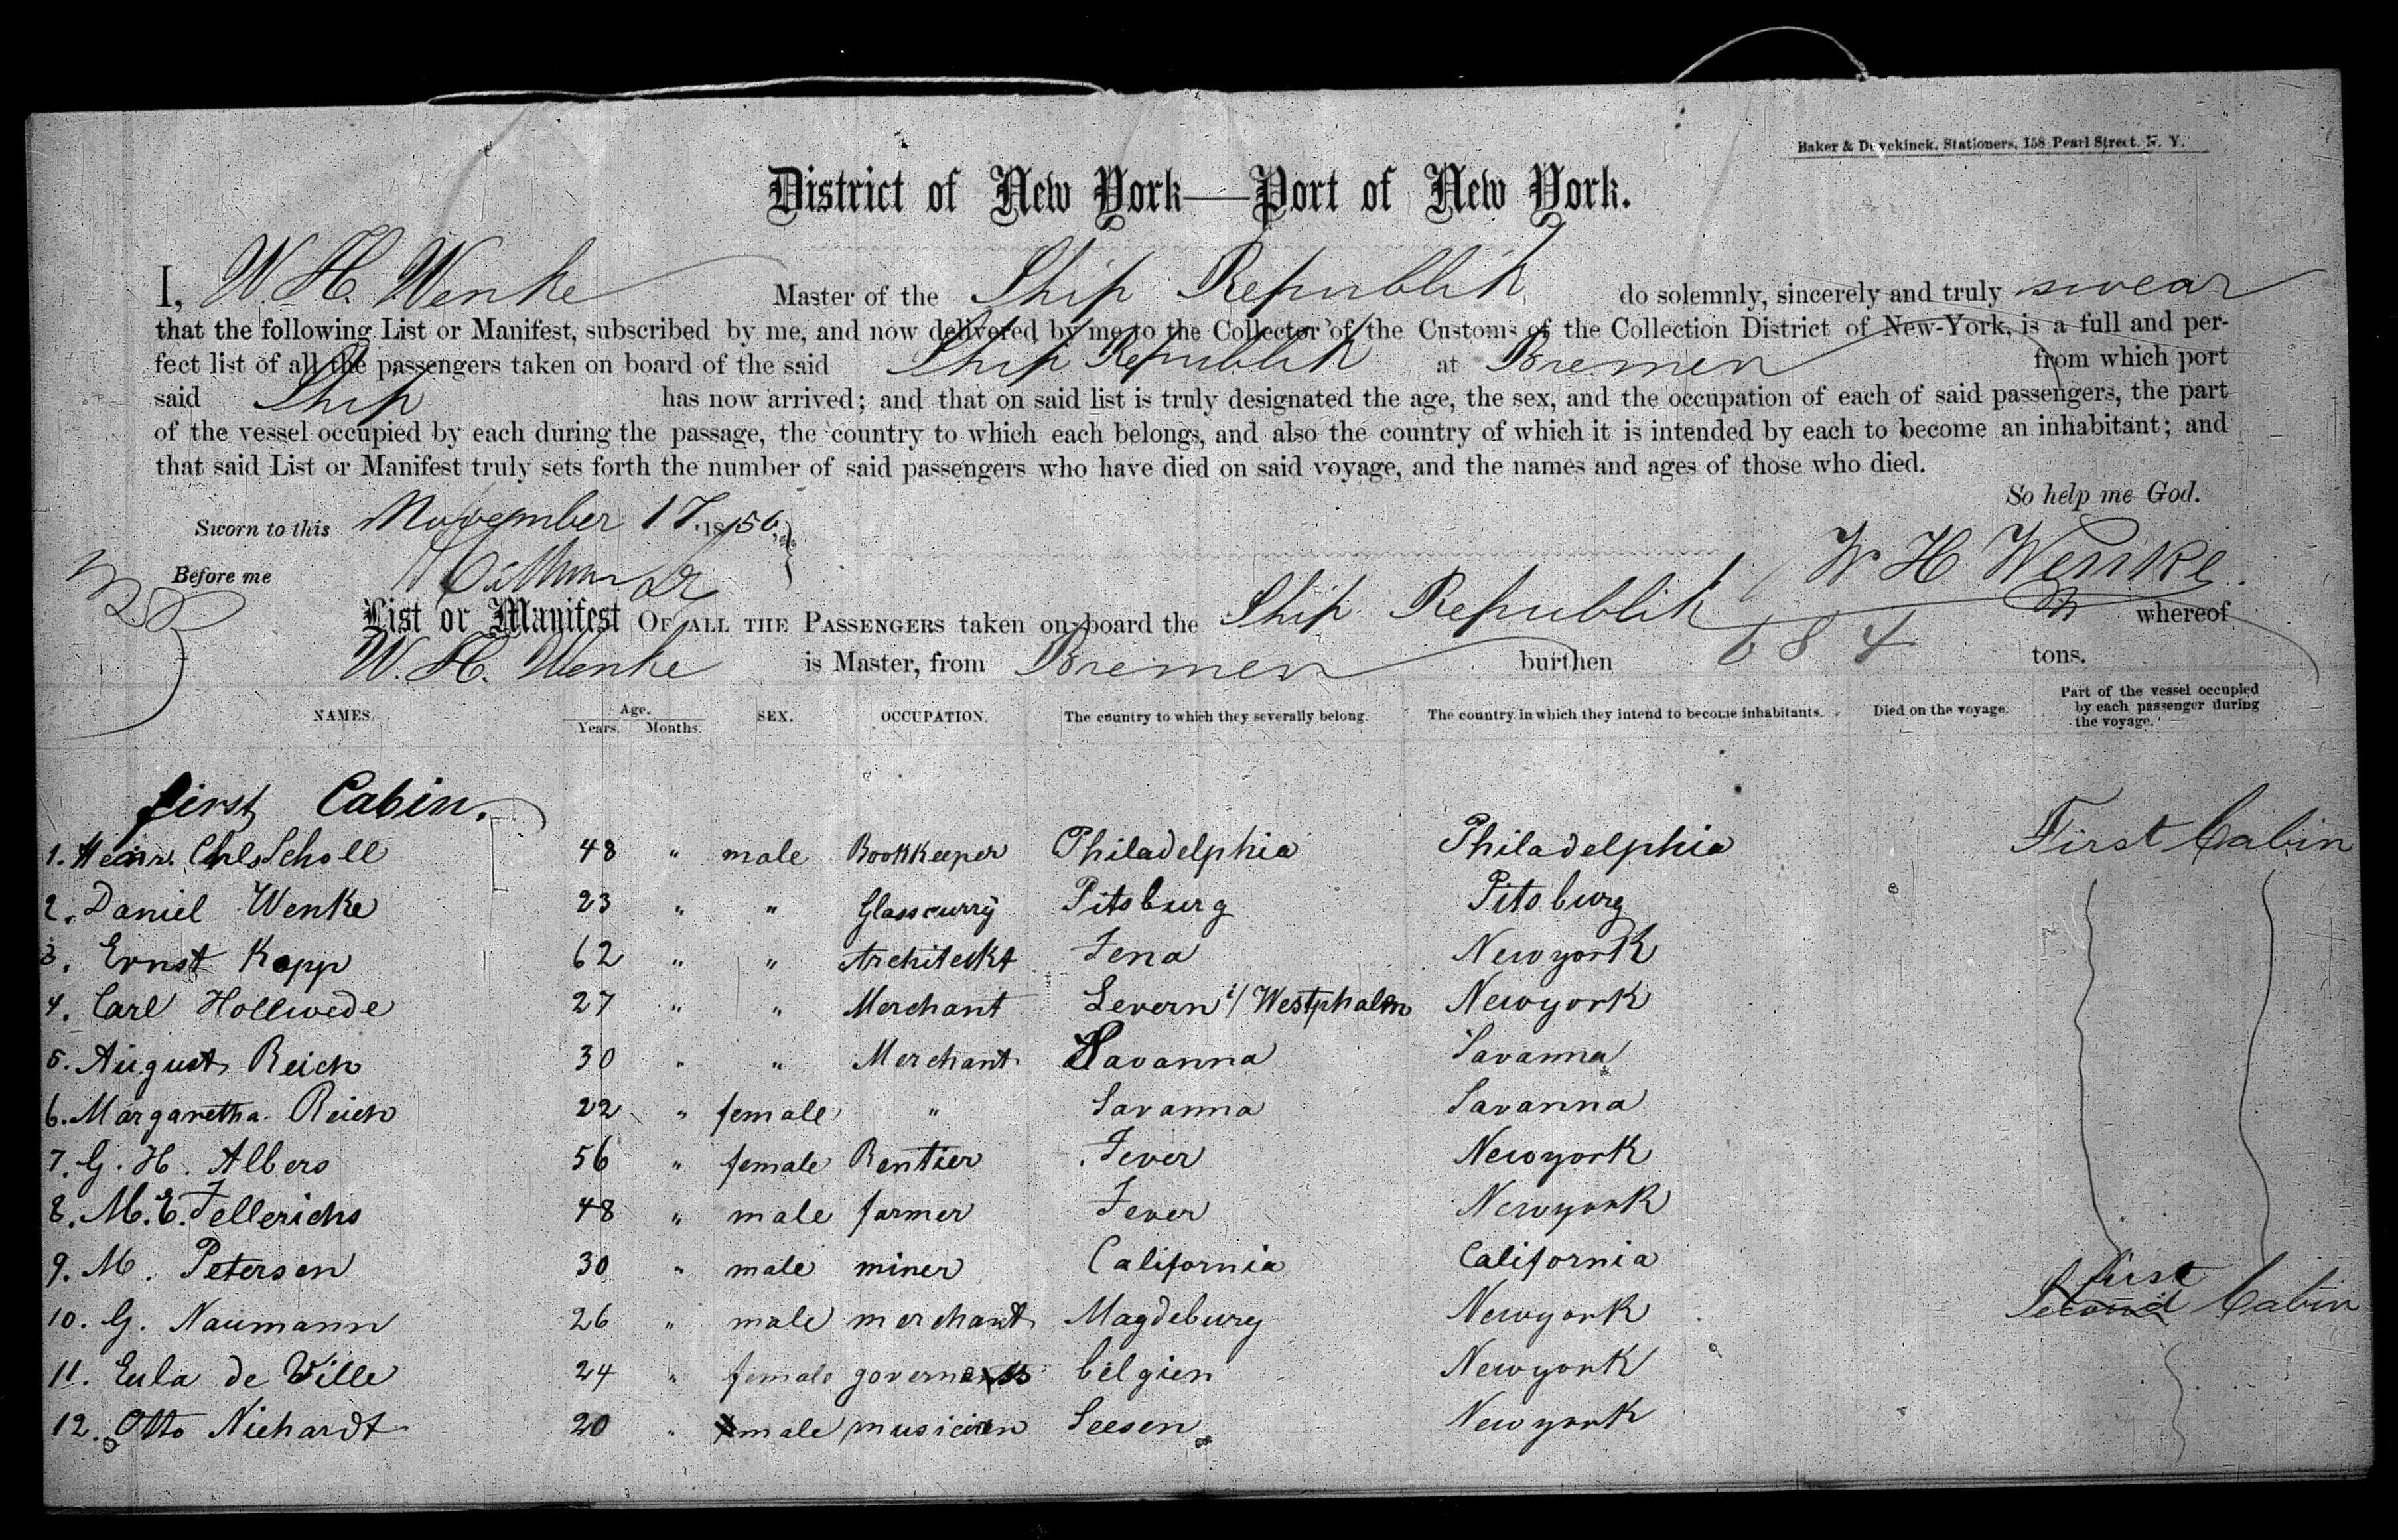 Baker & Duyckinck, Stationers, 158 Pearl Street. N. Y.
District of New York—Port of New York.
I, W. H. Wenke Master of the Ship Republik do solemnly, sincerely and truly swear
that the following List or Manifest, subscribed by me, and now delivered by me to the Collector of the Customs of the Collection District of New-York, is a full and per-
fect list of all the passengers taken on board of the said Ship Republik at Bremen from which port
said Ship has now arrived; and that on said list is truly designated the age, the sex, and the occupation of each of said passengers, the part
of the vessel occupied by each during the passage, the country to which each belongs, and also the country of which it is intended by each to become an inhabitant; and
that said List or Manifest truly sets forth the number of said passengers who have died on said voyage, and the names and ages of those who died.
So help me God.
Sworn to this November 17. 1856,
W H Wenke
Before me
List or Manifest OF ALL THE PASSENGERS taken on board the Ship Republik whereof
W. H. Wenke is Master, from Bremen burthen 684 tons.
NAMES. Age. Years. Months. SEX. OCCUPATION. The country to which they severally belong. The country in which they intend to become inhabitants. Died on the voyage. Part of the vessel occupied by each passenger during the voyage.
first Cabin.
1. Heinr. Chls Scholl 48 " male Bookkeeper Philadelphia Philadelphia First Cabin
2. Daniel Wenke 23 " " Pitsburg Pitsburg
3. Ernst Kopp 62 " " Architeckt Jena Newyork
4. Carl Hollwede 27 " " Merchant Levern i/ Westphalen Newyork
5. August Reich 30 " " Merchant Savanna Savanna
6. Margaretha Reich 22 " female " Savanna Savanna
7. G. H. Albers 56 " female Rentier Jever Newyork
8. M. E. Fellerichs 48 " male farmer Jever Newyork
9. M. Petersen 30 " male miner California California
10. G. Naumann 26 " male merchant Magdeburg Newyork first Second Cabin
11. Eula de Wille 24 " female governess belgien Newyork
12. Otto Niehardt 20 " male musician Seesen Newyork